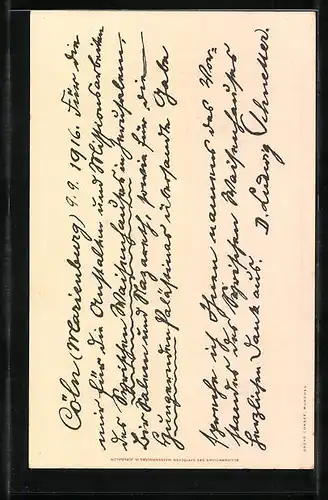 Cöln (Marienburg) 9.9. 1916. Für die
mir für die Anstalten und Missionsarbeiten
des Syrischen Waisenhauses in Jerusalem,
Bir Salem und Nazareth, sowie für die
Hungernden Palästinas übersandte Gabe
spreche ich Ihnen namens des Vor-
standes des Syrischen Waisenhauses
herzlichen Dank aus. D. Ludwig Schneller.